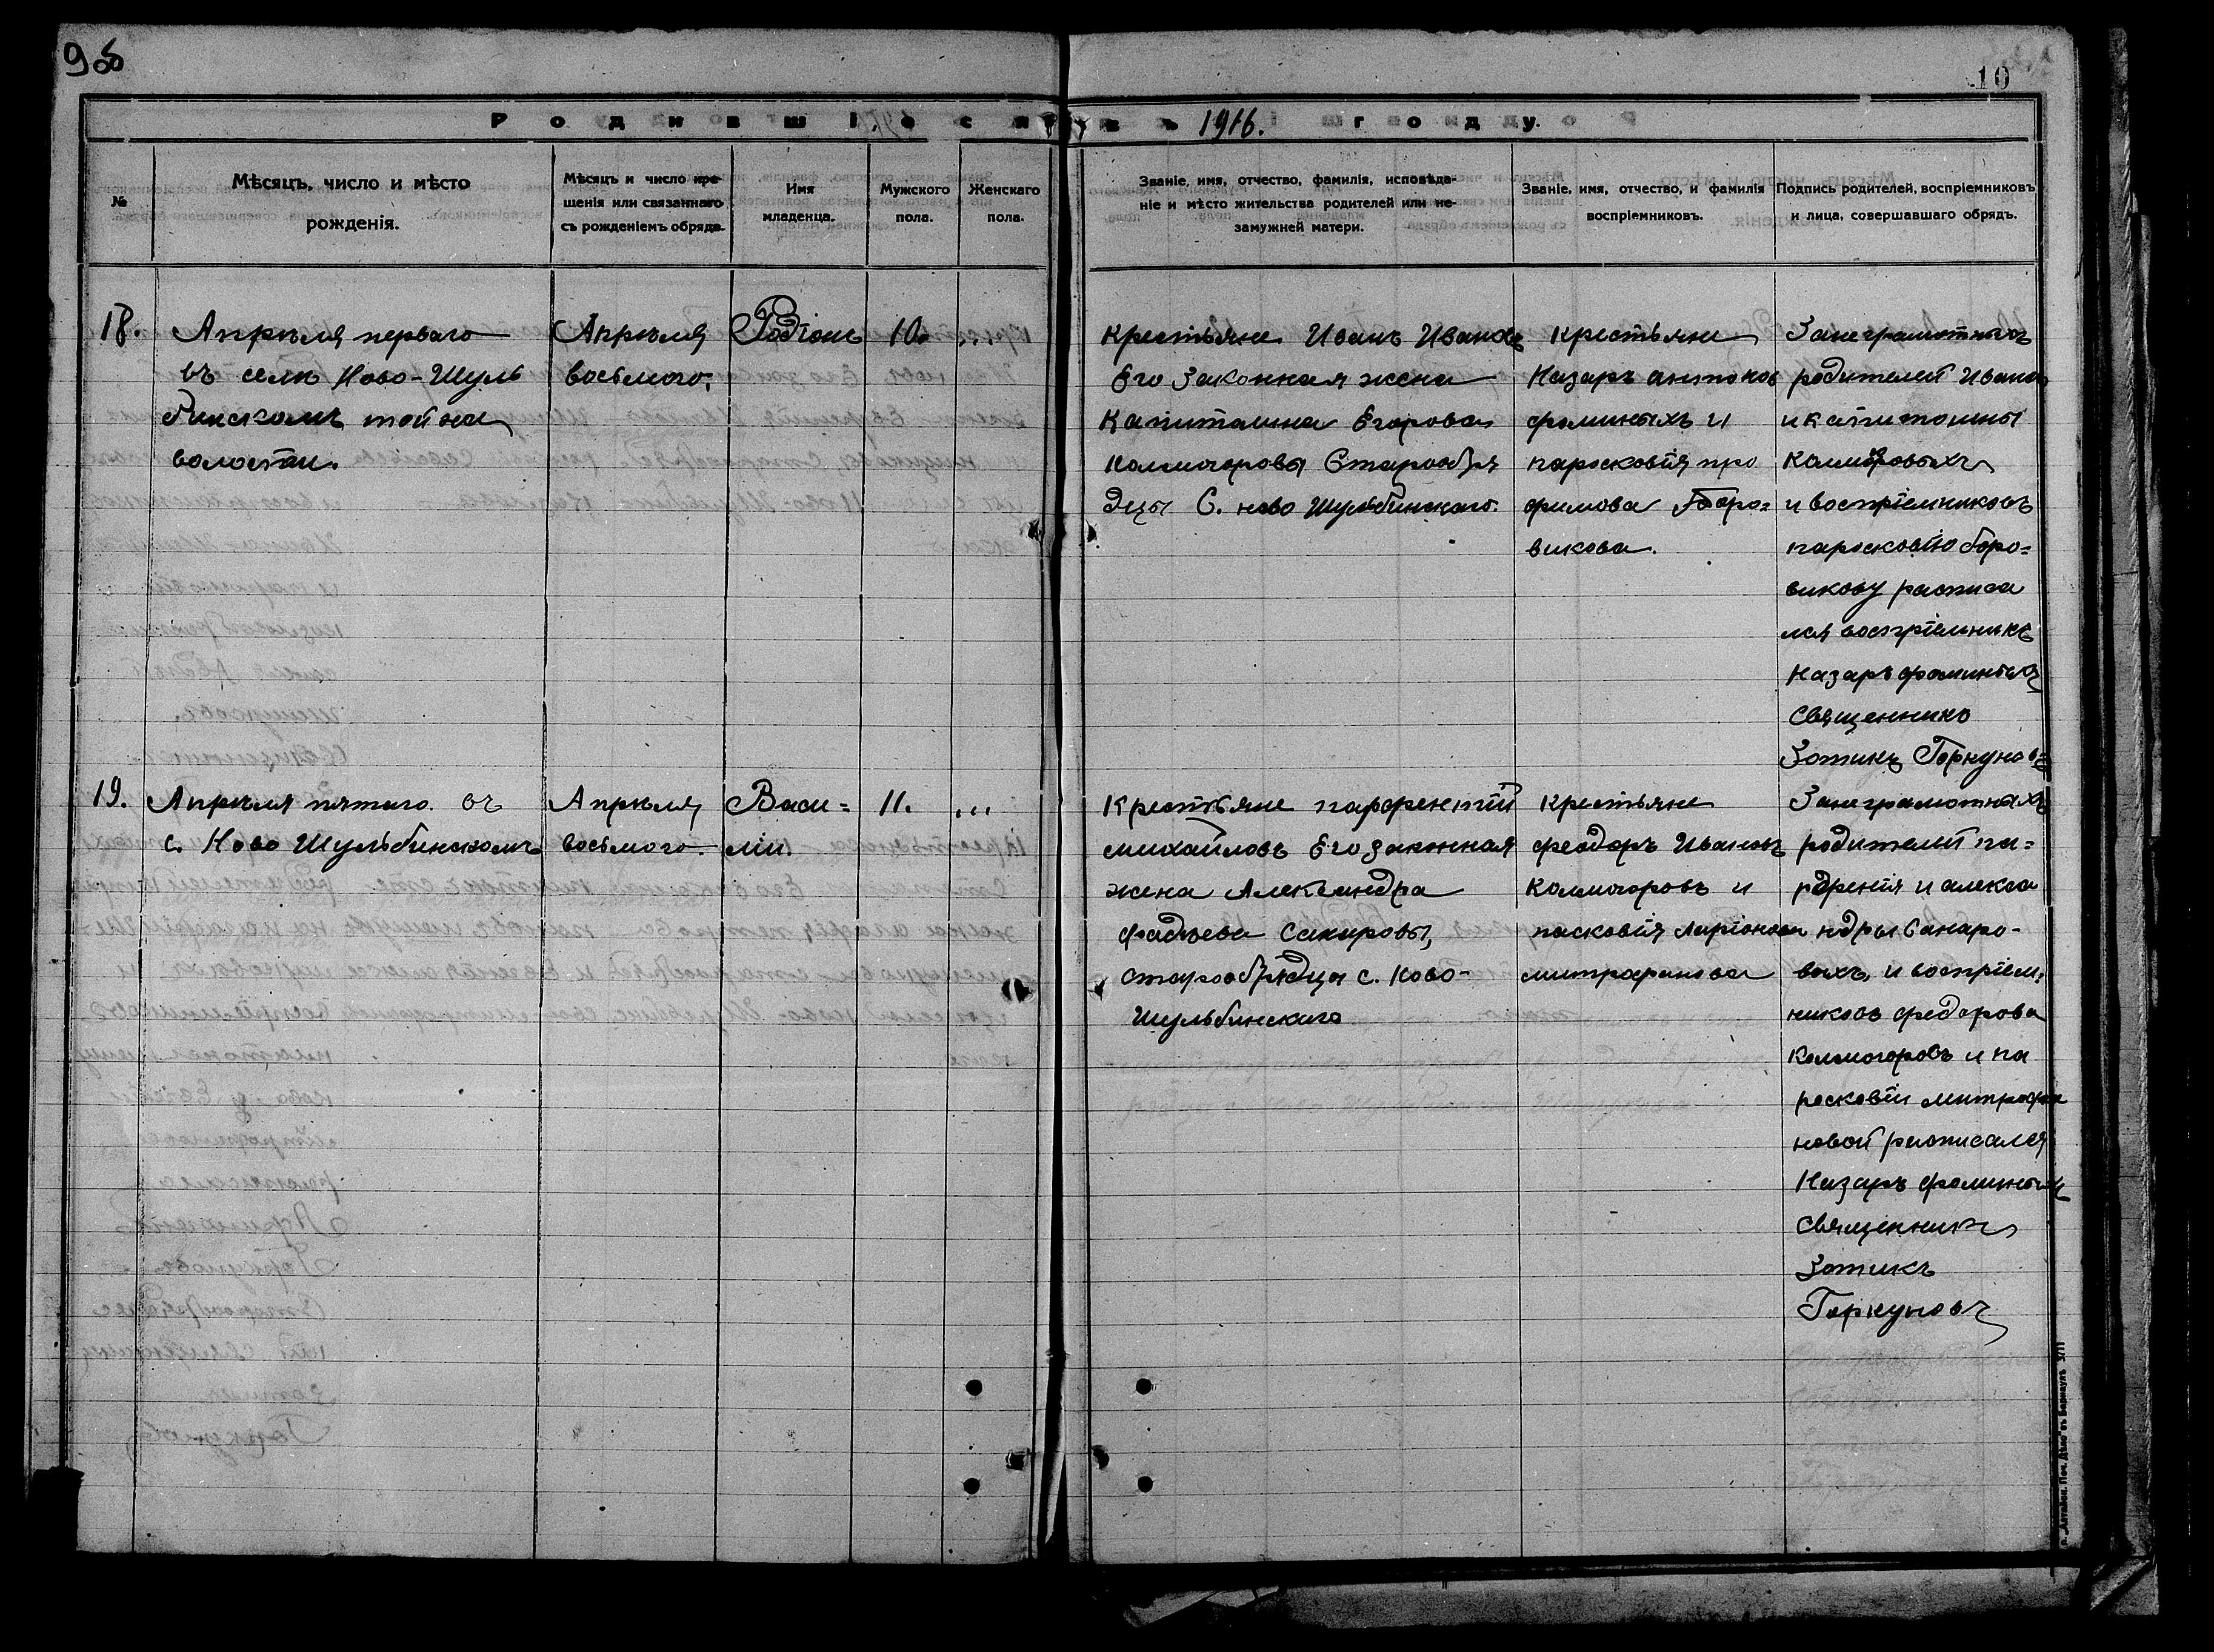 9об
10
Родившіеся
въ 1916. году.
№
Мѣсяцъ, число и мѣсто
рожденія.
Мѣсяцъ и число кре-
щенія или связаннаго
съ рожденіемъ обряда.
Имя
младенца.
Мужского
пола.
Женскаго
пола.
Званіе, имя, отчество, фамилія, исповѣда-
ніе и мѣсто жительства родителей или не-
замужней матери.
Званіе, имя, отчество, и фамилія
воспріемниковъ.
Подпись родителей, воспріемниковъ
и лица, совершавшаго обрядъ.
18.
Апрѣля перваго
въ селѣ Ново-Шуль
бинскомъ той же
волости.
Апрѣля
восьмого.
Родіонъ
10.
...
Крестьяне Иванъ Ивановъ
Его Законная жена
Капиталина Егорова
Колмогоровы Старообря
дцы С. ново Шульбинскаго.
Крестьяне
Назаръ антонов
фоминыхъ и
паросковія про
фимова Боро=
викова.
Занеграмотныхъ
родителей Ивана
и капитолины
Колмогоровыхъ
и воспріемниковъ
паросковію боро=
викову расписа
лся воспріемникъ
Назаръ фоминыхъ
Священникъ
Зотикъ Горкуновъ
19.
Апрѣля пятаго въ
с. Ново Шульбинскомъ
Апрѣля
восьмого.
Васи=
лій.
11.
...
Крестьяне парфентій
михайловъ Его законная
жена Александра
фадѣева Санаровы,
старообрядцы с. Ново-
Шульбинскаго
Крестьяне
феодоръ Ивановъ
Колмогоровъ и
пасковія Ларіонова
митрофанова
Занеграмотныхъ
родителей па=
рфенія и алекса
ндры Санаро-
выхъ и воспріем=
никовъ федорова
Колмогоровъ и па
росковіи митрофа
новой расписался
Назаръ фоминыхъ
священникъ
Зотикъ
Горкуновъ